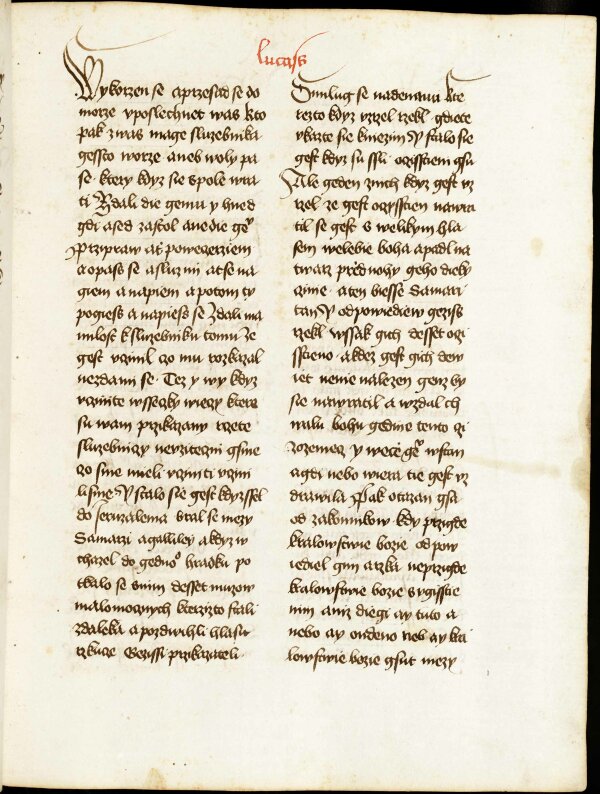 lucass
Wykorzen se a przesad se do
morze vposlechnet was kto
pak zwas mage sluzebnika
gessto worze aneb woly pa
se ktery kdyz sie spole wra
ti Zdali die gemu y hned
gdi a sed za stol a nedie geo
Przipraw at poweczerziem
a opass se a sluz mi at se na
giem a napiem a potom ty
pogiess a napiess se Zdali ma
milost k sluzebniku tomu Ze
gest vzinil czo mu rozkazal
nezdami se Tez y wy kdyz
vzinite wsseczky wieczy ktere
su wam przikazany rzete
sluzebniczy nevzitezni gsme
czo sme mieli vziniti vzini
li sme Y stalo sie gest kdyz ssel
do Jeruzalema bral se mezy
Samarzi a galiley a kdyz w
chazel do gednoo hradku po
tkalo se snim desset muzow
malomocznych kterzizto stali
zdaleka a pozdwihli hlasu
rzkucze Gezissi przikazateli
Smilug se nad nami kte
rezto kdyz vzrzel rzekl gdiete
vkazte sie kniezim Y stalo sie
gest kdyz su ssli oczisstieni gsu
Ale geden znich kdyz gest vz
rzel ze gest oczisstien nawra
til se gest s welikym hla
sem welebie boha a padl na
twarz przed nohy geho dieky
czinie a ten biesse Samari
tan Y odpowiediew geziss
rzekl wssak gich desset oczi
sstieno a kdez gest gich dew
iet nenie nalezen genz by
sie nawratil a wzdal ch
walu bohu gedine tento czi
zozemecz y wecze geo wstan
a gdi nebo wiera tie gest vz
drawila Pak otazan gsa
od zakonnikow kdy przigde
kralowstwie bozie odpow
iediel gim a rzka neprzigde
kralowstwie bozie s zgisstie
nim aniz diegi ay tuto a
nebo ay ondeno neb ay kra
lowstwie bozie gsut mezy